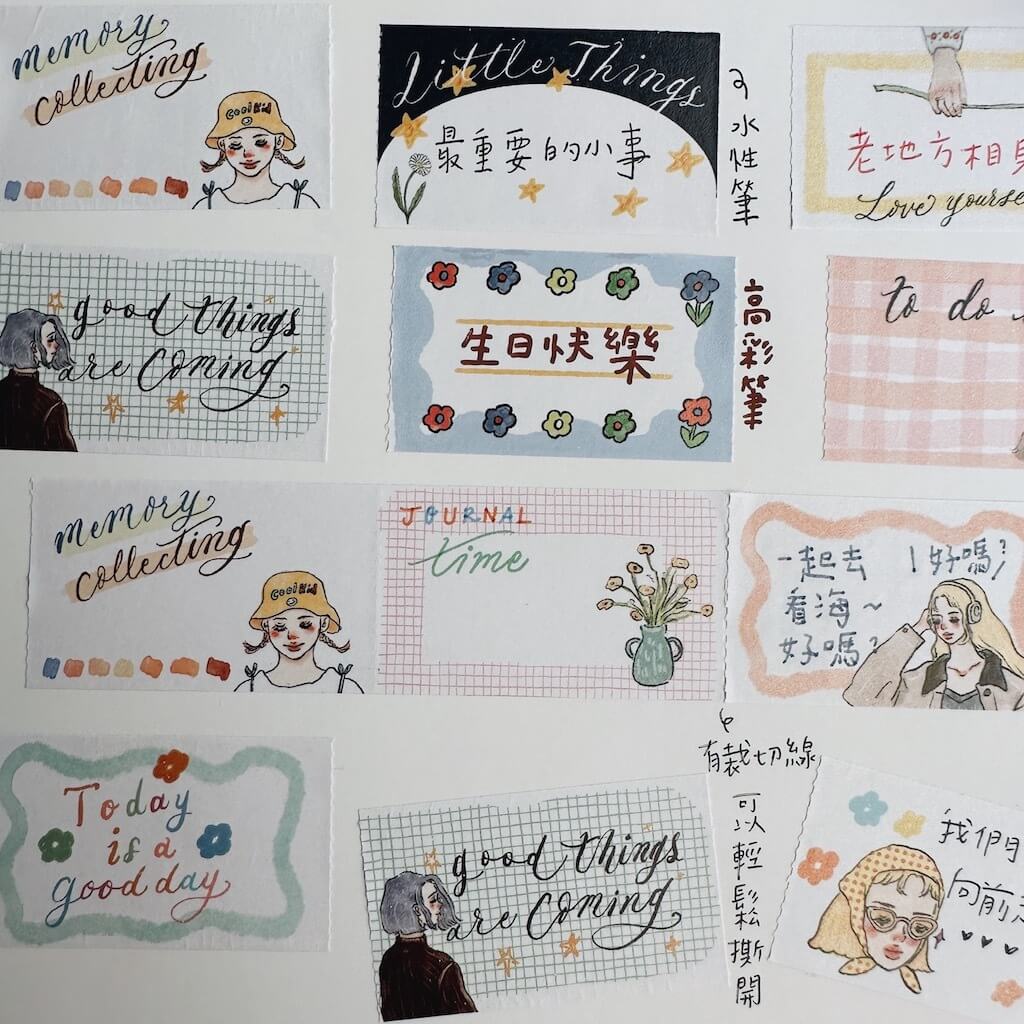 memory
collecting
Cool Kid
Little Things
最重要的小事
水性筆
老地方相見
Love yourse
good things
are coming
生日快樂
高彩筆
to do
memory
collecting
Cool Kid
JOURNAL
time
一起去
看海~
好嗎?
好嗎?
Today
is a
good day
有裁切線
可以輕鬆撕開
good things
are coming
我們
向前